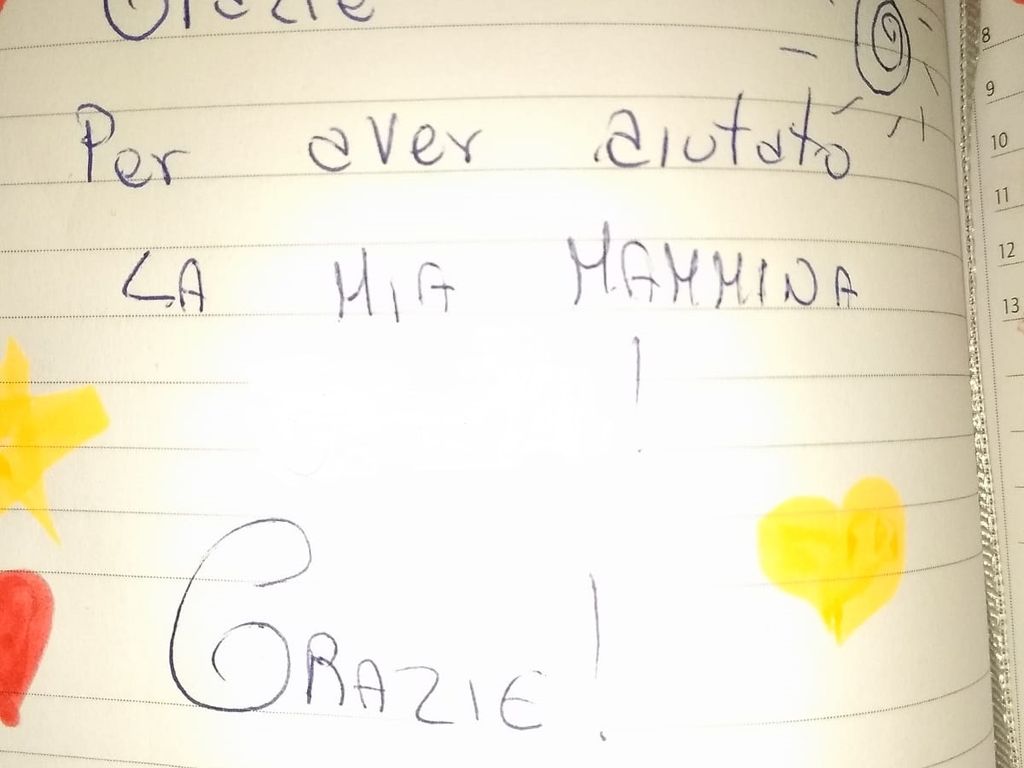 Grazie
Per aver aiutato
LA MIA MAMMINA
!
GRAZIE!
8
9
10
11
12
13